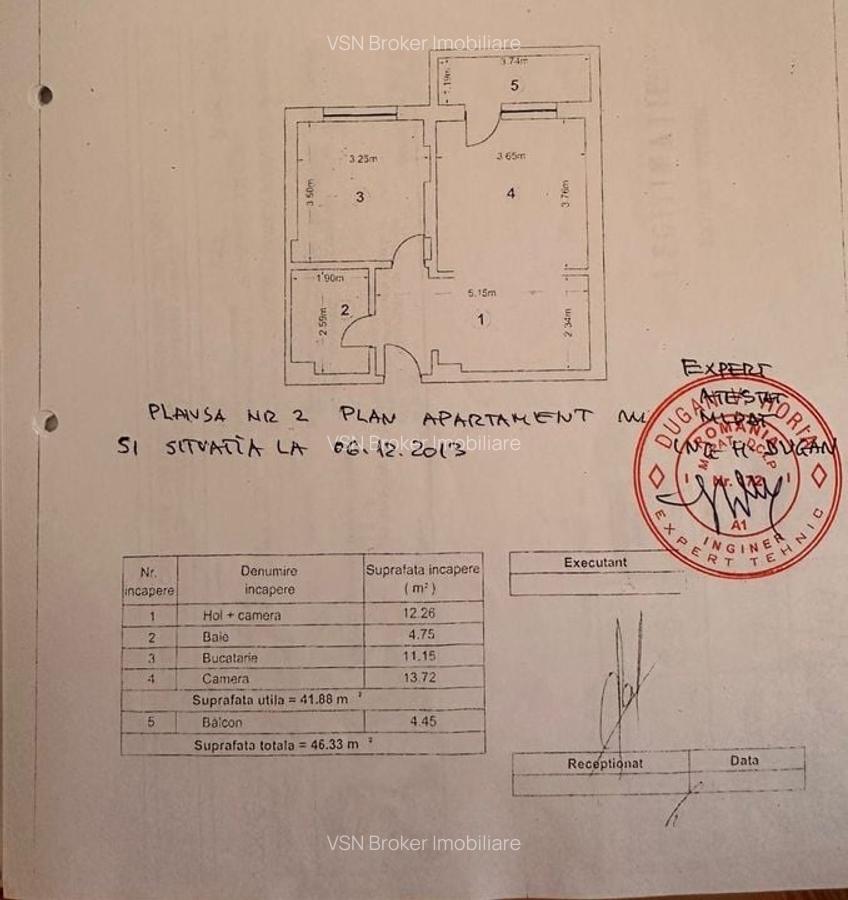 VSN Broker Imobiliare
3.74m
1.19m
5
3.25m
3.65m
3.50m
3
4
3.76m
1.90m
5.15m
2
2.59m
1
2.34m
EXPERT
PLANSA NR 2 PLAN APARTAMENT ATESTAT
SI SITUATIA LA 06.12.2013 ING H. DUGAN
VSN Broker Imobiliare
ROMANIA
Nr.
A1
INGINER
EXPERT TEHNIC
Nr. incapere Denumire incapere Suprafata incapere ( m² )
1 Hol + camera 12.26
2 Baie 4.75
3 Bucatarie 11.15
4 Camera 13.72
Suprafata utila = 41.88 m ²
5 Balcon 4.45
Suprafata totala = 46.33 m ²
Executant
Receptionat Data
VSN Broker Imobiliare